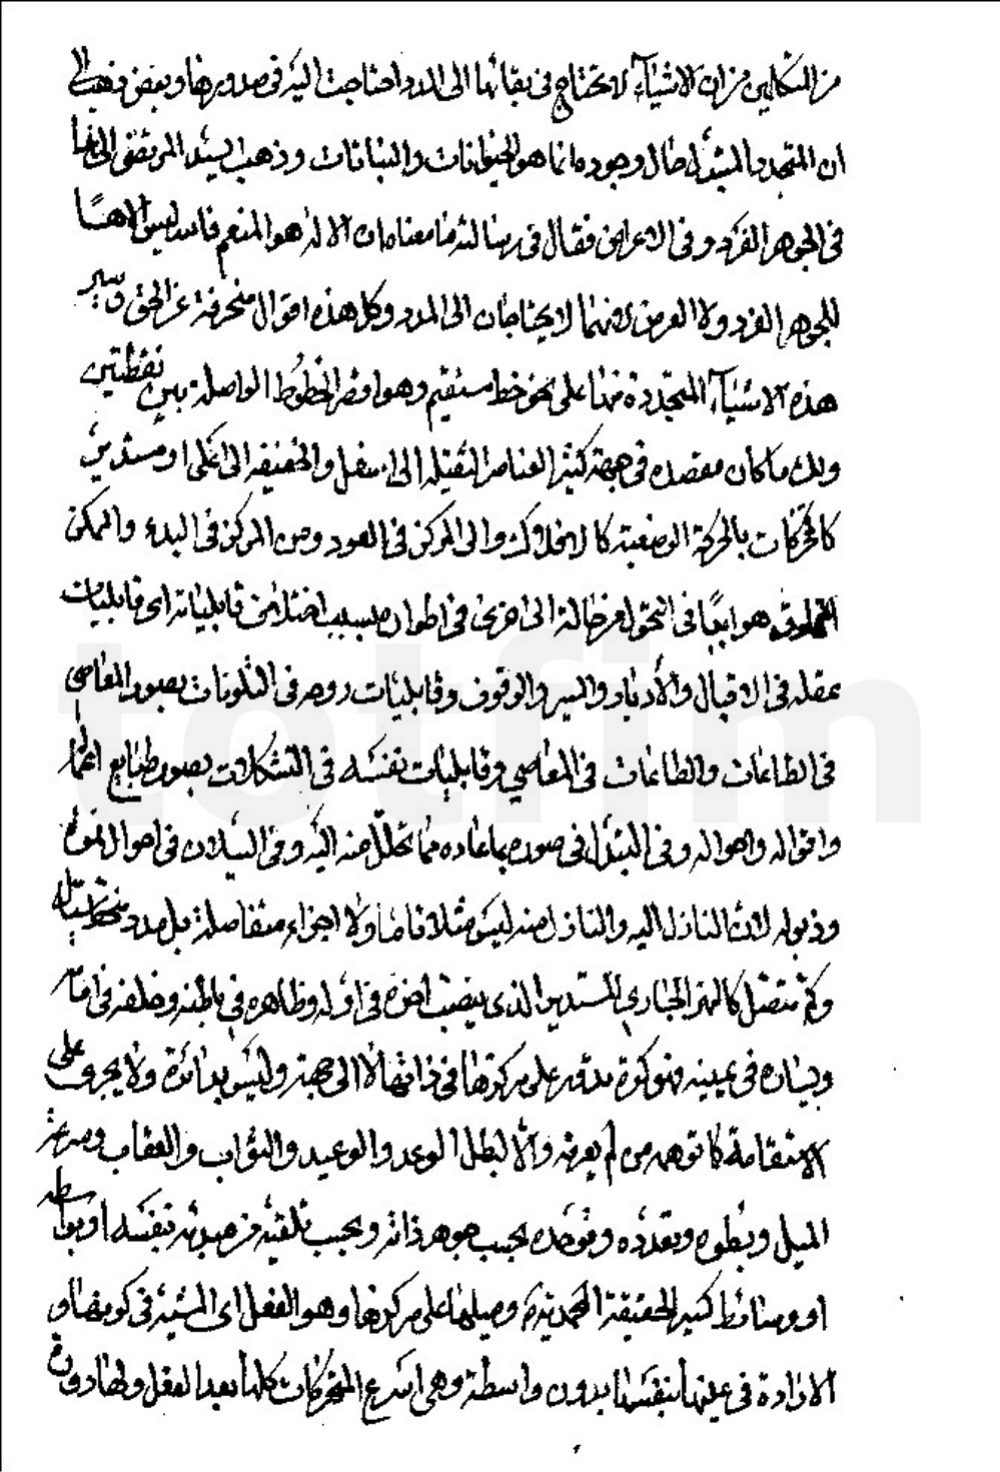 من المتكلمين من ان الاشياء لا تحتاج فى بقائها الى المدد احتاجت اليه فى صدورها وبعض ذهب الى
ان المتجدد المتبدل حال وجوده انما هو الحيوانات والنباتات وذهب السيد المرتضى الى انها
فى الجوهر الفرد وفى الاعراض فقال فى رسالته ما معناه ان الاله هو المنعم فانه ليس الاهًا
للجوهر الفرد ولا العرض لانهما لا يحتاجان الى المدد وكل هذه اقوال منحرفة عن الحق وسير
هذه الاشياء المتجددة منها على نحو خط مستقيم وهو اقصر الخطوط الواصلة بين نقطتين
وذلك ما كان مقصده فى جهة كسير العناصر الثقيلة الى اسفل والخفيفة الى اعلى او مستدير
كالمتحركات بالحركة الوضعية كالافلاك والى المركز فى العود ومن المركز فى البدء والممكن
المخلوق هو ايضًا فى التحول من حالة الى اخرى فى اطواره بسبب اختلاف قابلياته اى قابليات
عقله فى الاقبال والأدبار والسير والوقوف وقابليات روحه فى التلونات بصور المعاصى
فى الطاعات والطاعات فى المعاصي وقابليات نفسه فى التشكلات بصور طبايع اعماله
واقواله واحواله وفى التبدل فى صوره بما عاده مما تحلل منه اليه وفى السيلان فى احوال نموه
وذبوله لان النازل اليه والنازل منه ليس مثلا قائما ولا اجزاء متفاصلة بل مدد متصل سيال
وكم متصل كالنهر الجاري المستدير الذى يصب اخره فى اوله وظاهره في باطنه وخلفه فى امامه
ويساره فى يمينه فهو كرة تدور على مركزها في ذاتها لا الى جهة وليس بدائرة ولا يجرى على
الاستقامة كما توهمه من لم يعرفه والا لبطل الوعد والوعيد والثواب والعقاب وسرعة
الميل وبطوه وتعدده وتوحده بحسب جوهر ذاته وبحسب تلقيه من مبدئه بنفسه او بواسطة
او وسائط كسير الحقيقة المحمدية وميلها على مركزها وهو الفعل اى المشية فى كونها و
الارادة فى عينها بنفسها بدون واسطة وهى اسرع المتحركات كلها بعد الفعل ولها دورة